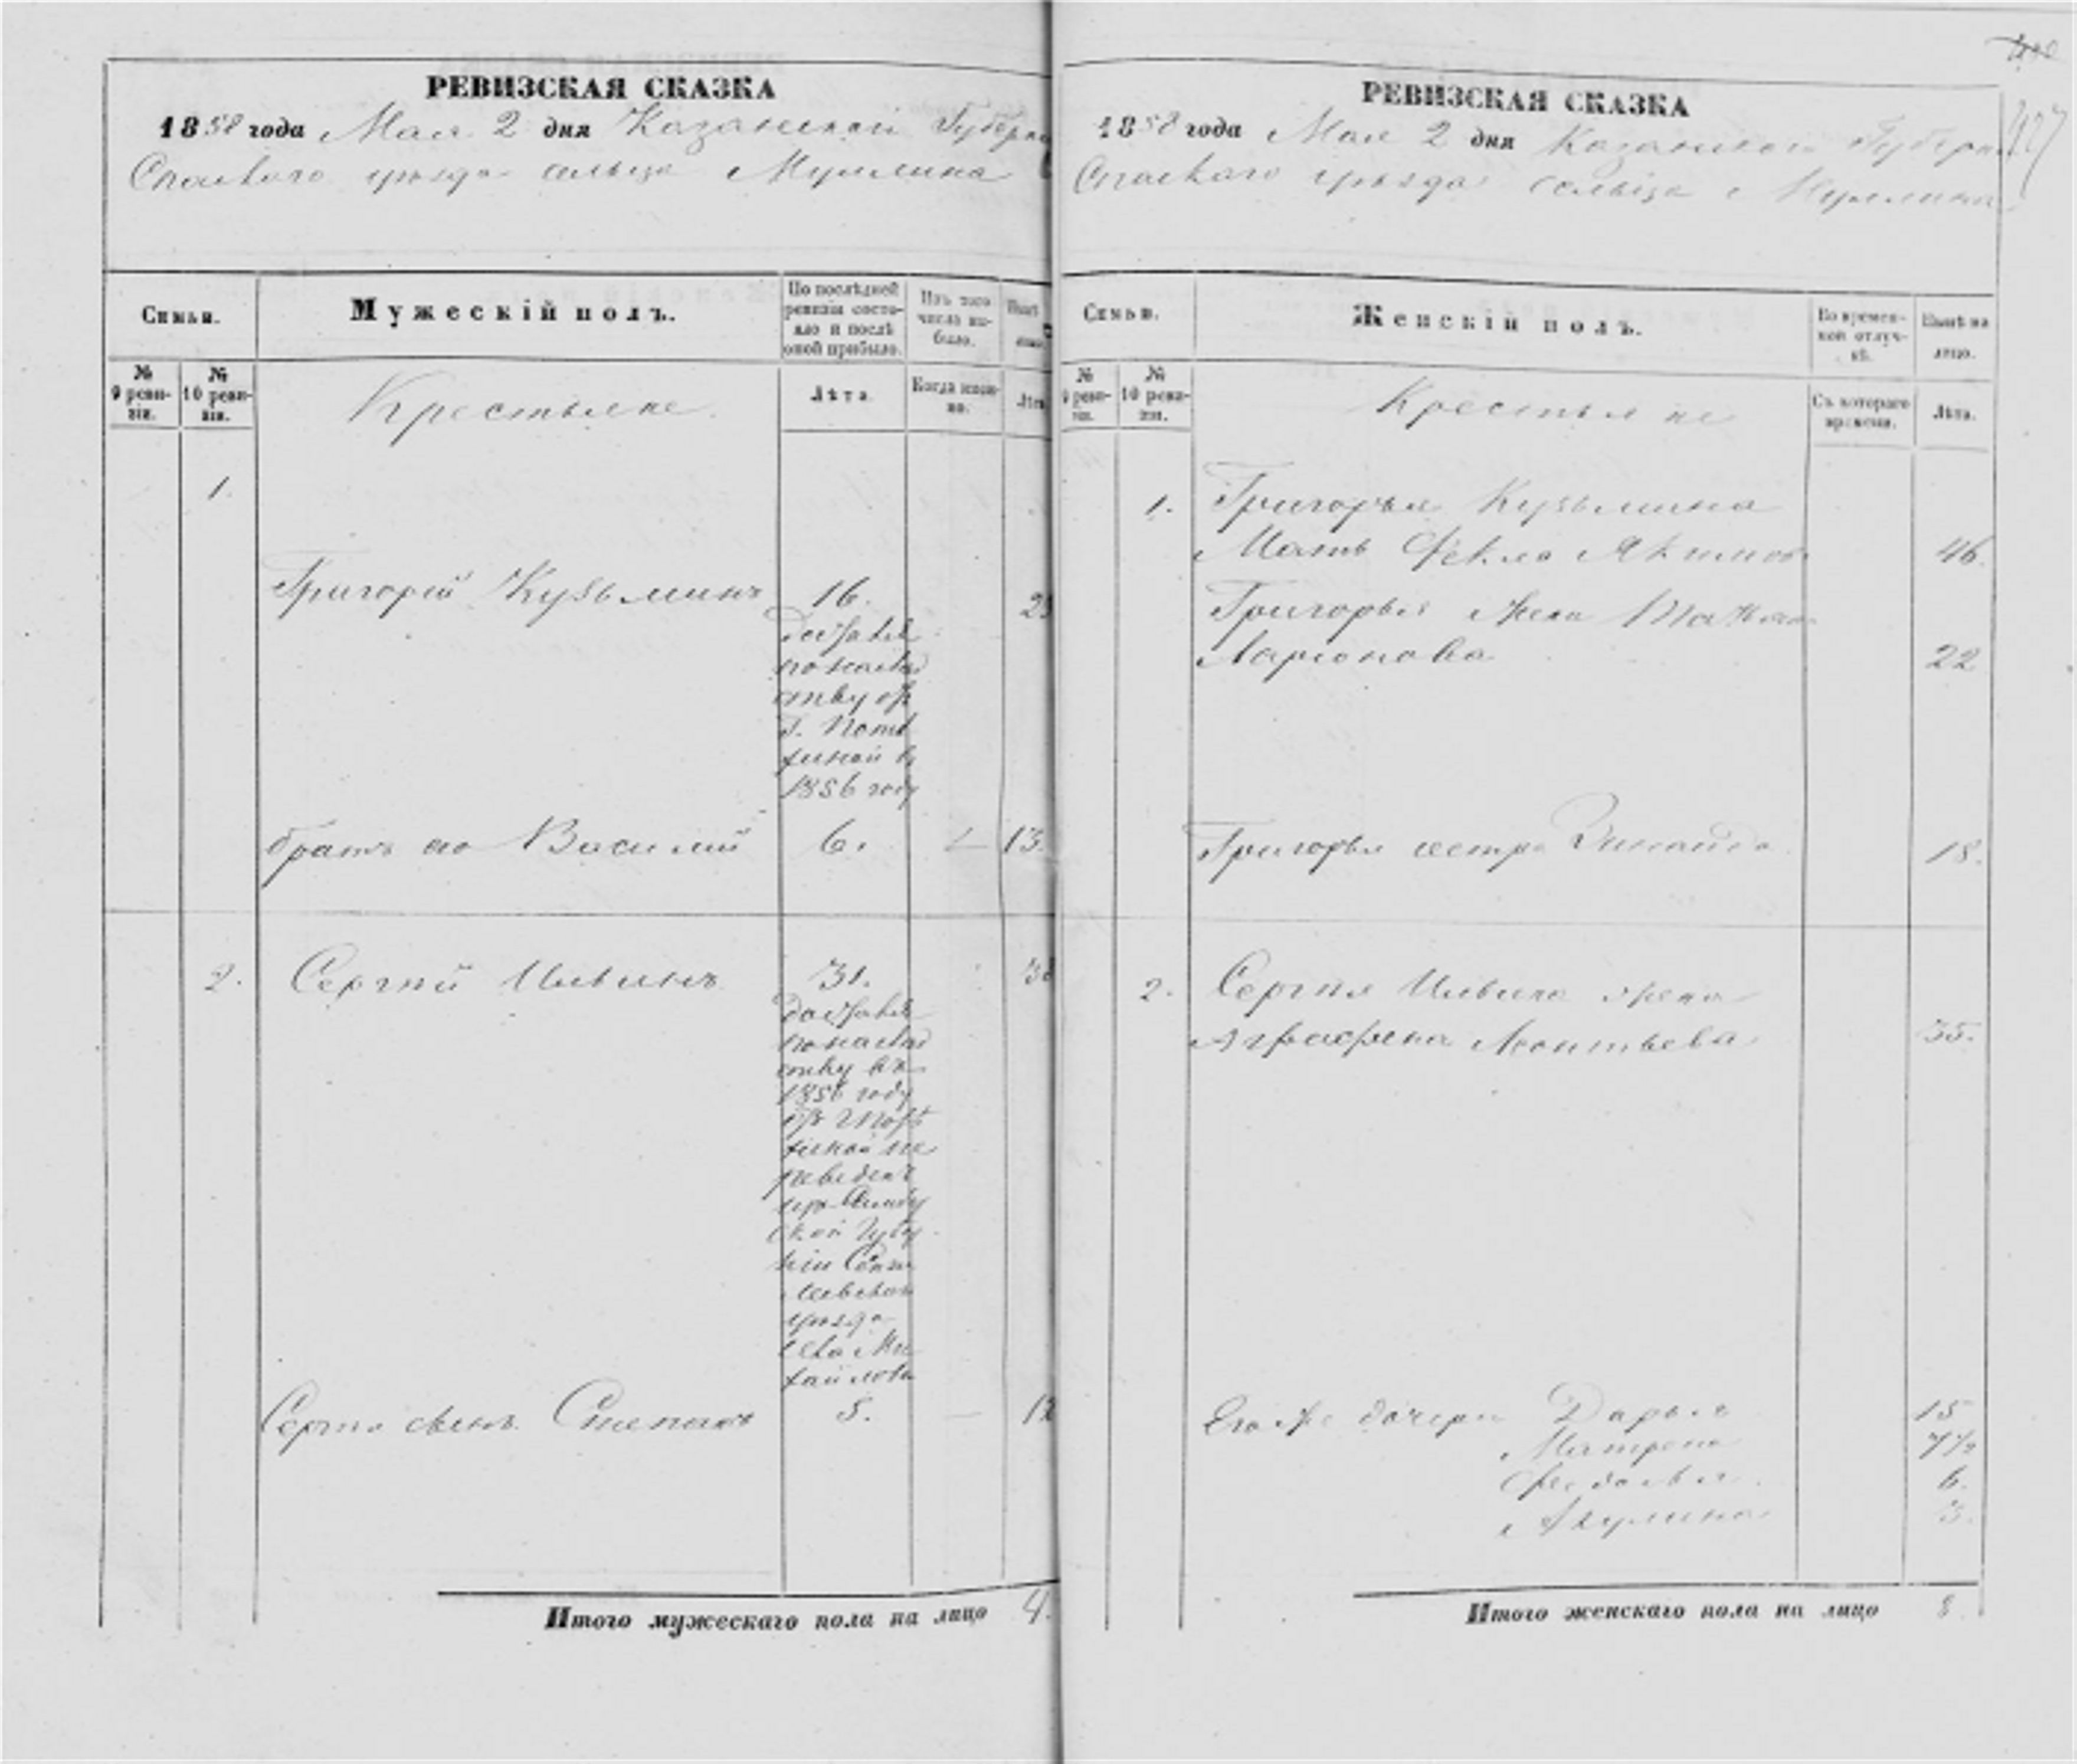 РЕВИЗСКАЯ СКАЗКА
1858 года Мая 2 дня Казанской Губерніи
Спаскаго уѣзда сельца Мурзина
Семьи.
Мужескій полъ.
По послѣдней
ревизіи состо-
яло и послѣ
оной прибыло.
Изъ того
числа вы-
было.
№
9 реви-
зіи.
№
10 реви-
зіи.
Крестьяне.
Лѣта.
Когда имен-
но.
1.
Григорій Кузьминъ 16.
достался
по наслѣд
ству отъ
Г.
1856 году
братъ его Василій 6. 13.
2. Сергѣй 31.
достался
по наслѣд
ству въ
1856 году
отъ
реведенъ
ской Губер
ніи
уѣзда
села Ми
хайловки
Сергѣя сынъ Степанъ 5. —
Итого мужескаго пола на лицо 4.
РЕВИЗСКАЯ СКАЗКА
1858 года Мая 2 дня Казанской Губерніи
Спаскаго уѣзда сельца
Семьи.
Женскій полъ.
Во времен-
ной отлуч-
кѣ.
Нынѣ на
лицо.
№
9 реви-
зіи.
№
10 реви-
зіи.
Крестьяне
Съ котораго
времени.
Лѣта.
1. Григорья Кузьмина
Мать Фекла Якимова 46.
Григорья жена Татьяна
Ларионова 22
Григорья сестра Зинаида 18.
2. Сергѣя жена
Аграфена Леонтьева 35.
Его же дочери Дарья 15
Матрена 7½
Федосья 6.
Акулина 3.
Итого женскаго пола на лицо 8.